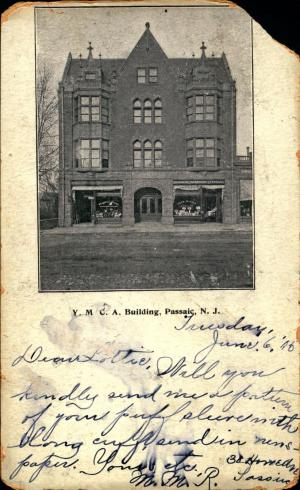 Y. M. C. A. Building, Passaic, N. J.
Tuesday,
June 6,
Dear Lottie, Will you
kindly send me a pattern
of your puff sleeve with
long cuff & send in news
paper. Yours etc.
M. M. R.